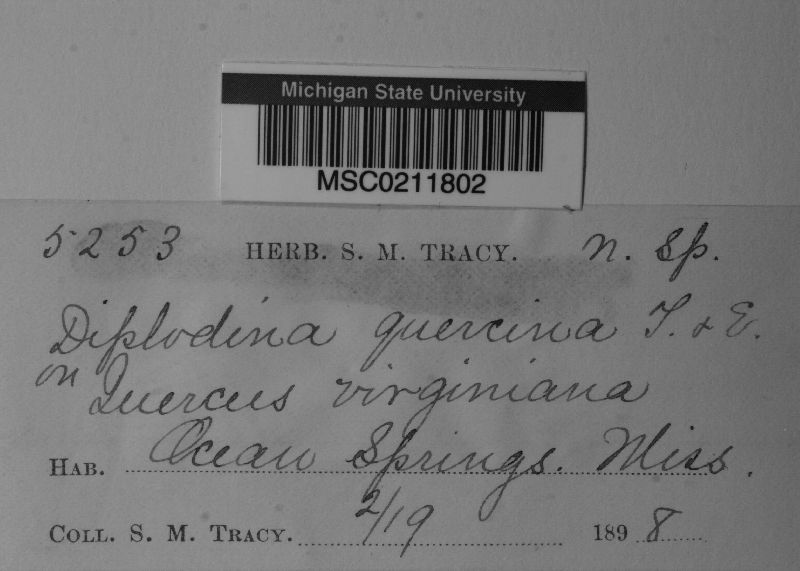 Michigan State University
MSC0211802
5253 HERB. S. M. TRACY. n. sp.
Diplodina quercina T. & E.
on Quercus virginiana
HAB. Ocean Springs. Miss.
COLL. S. M. TRACY. 2/19 1898